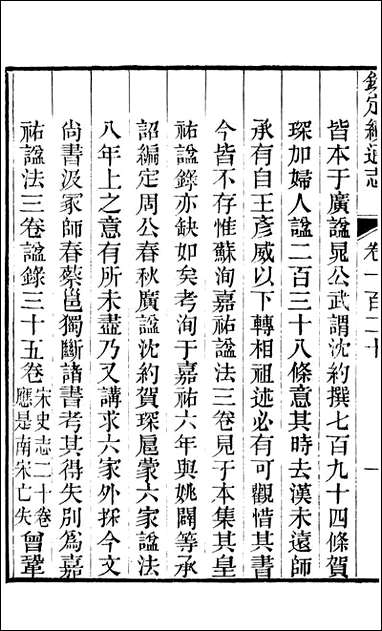 欽定續通志
卷一百二十
一
皆本于廣諡晁公武謂沈約撰七百九十四條賀
琛加婦人諡二百三十八條意其時去漢未遠師
承有自王彥威以下轉相祖述必有可觀惜其書
今皆不存惟蘇洵嘉祐諡法三卷見于本集其皇
祐諡錄亦缺如矣考洵于嘉祐六年與姚闢等承
詔編定周公春秋廣諡沈約賀琛扈蒙六家諡法
八年上之意有所未盡乃又講求六家外採今文
尚書汲冢師春蔡邕獨斷諸書考其得失別為嘉
祐諡法三卷諡錄三十五卷宋史志二十卷應是南宋亡失曾鞏